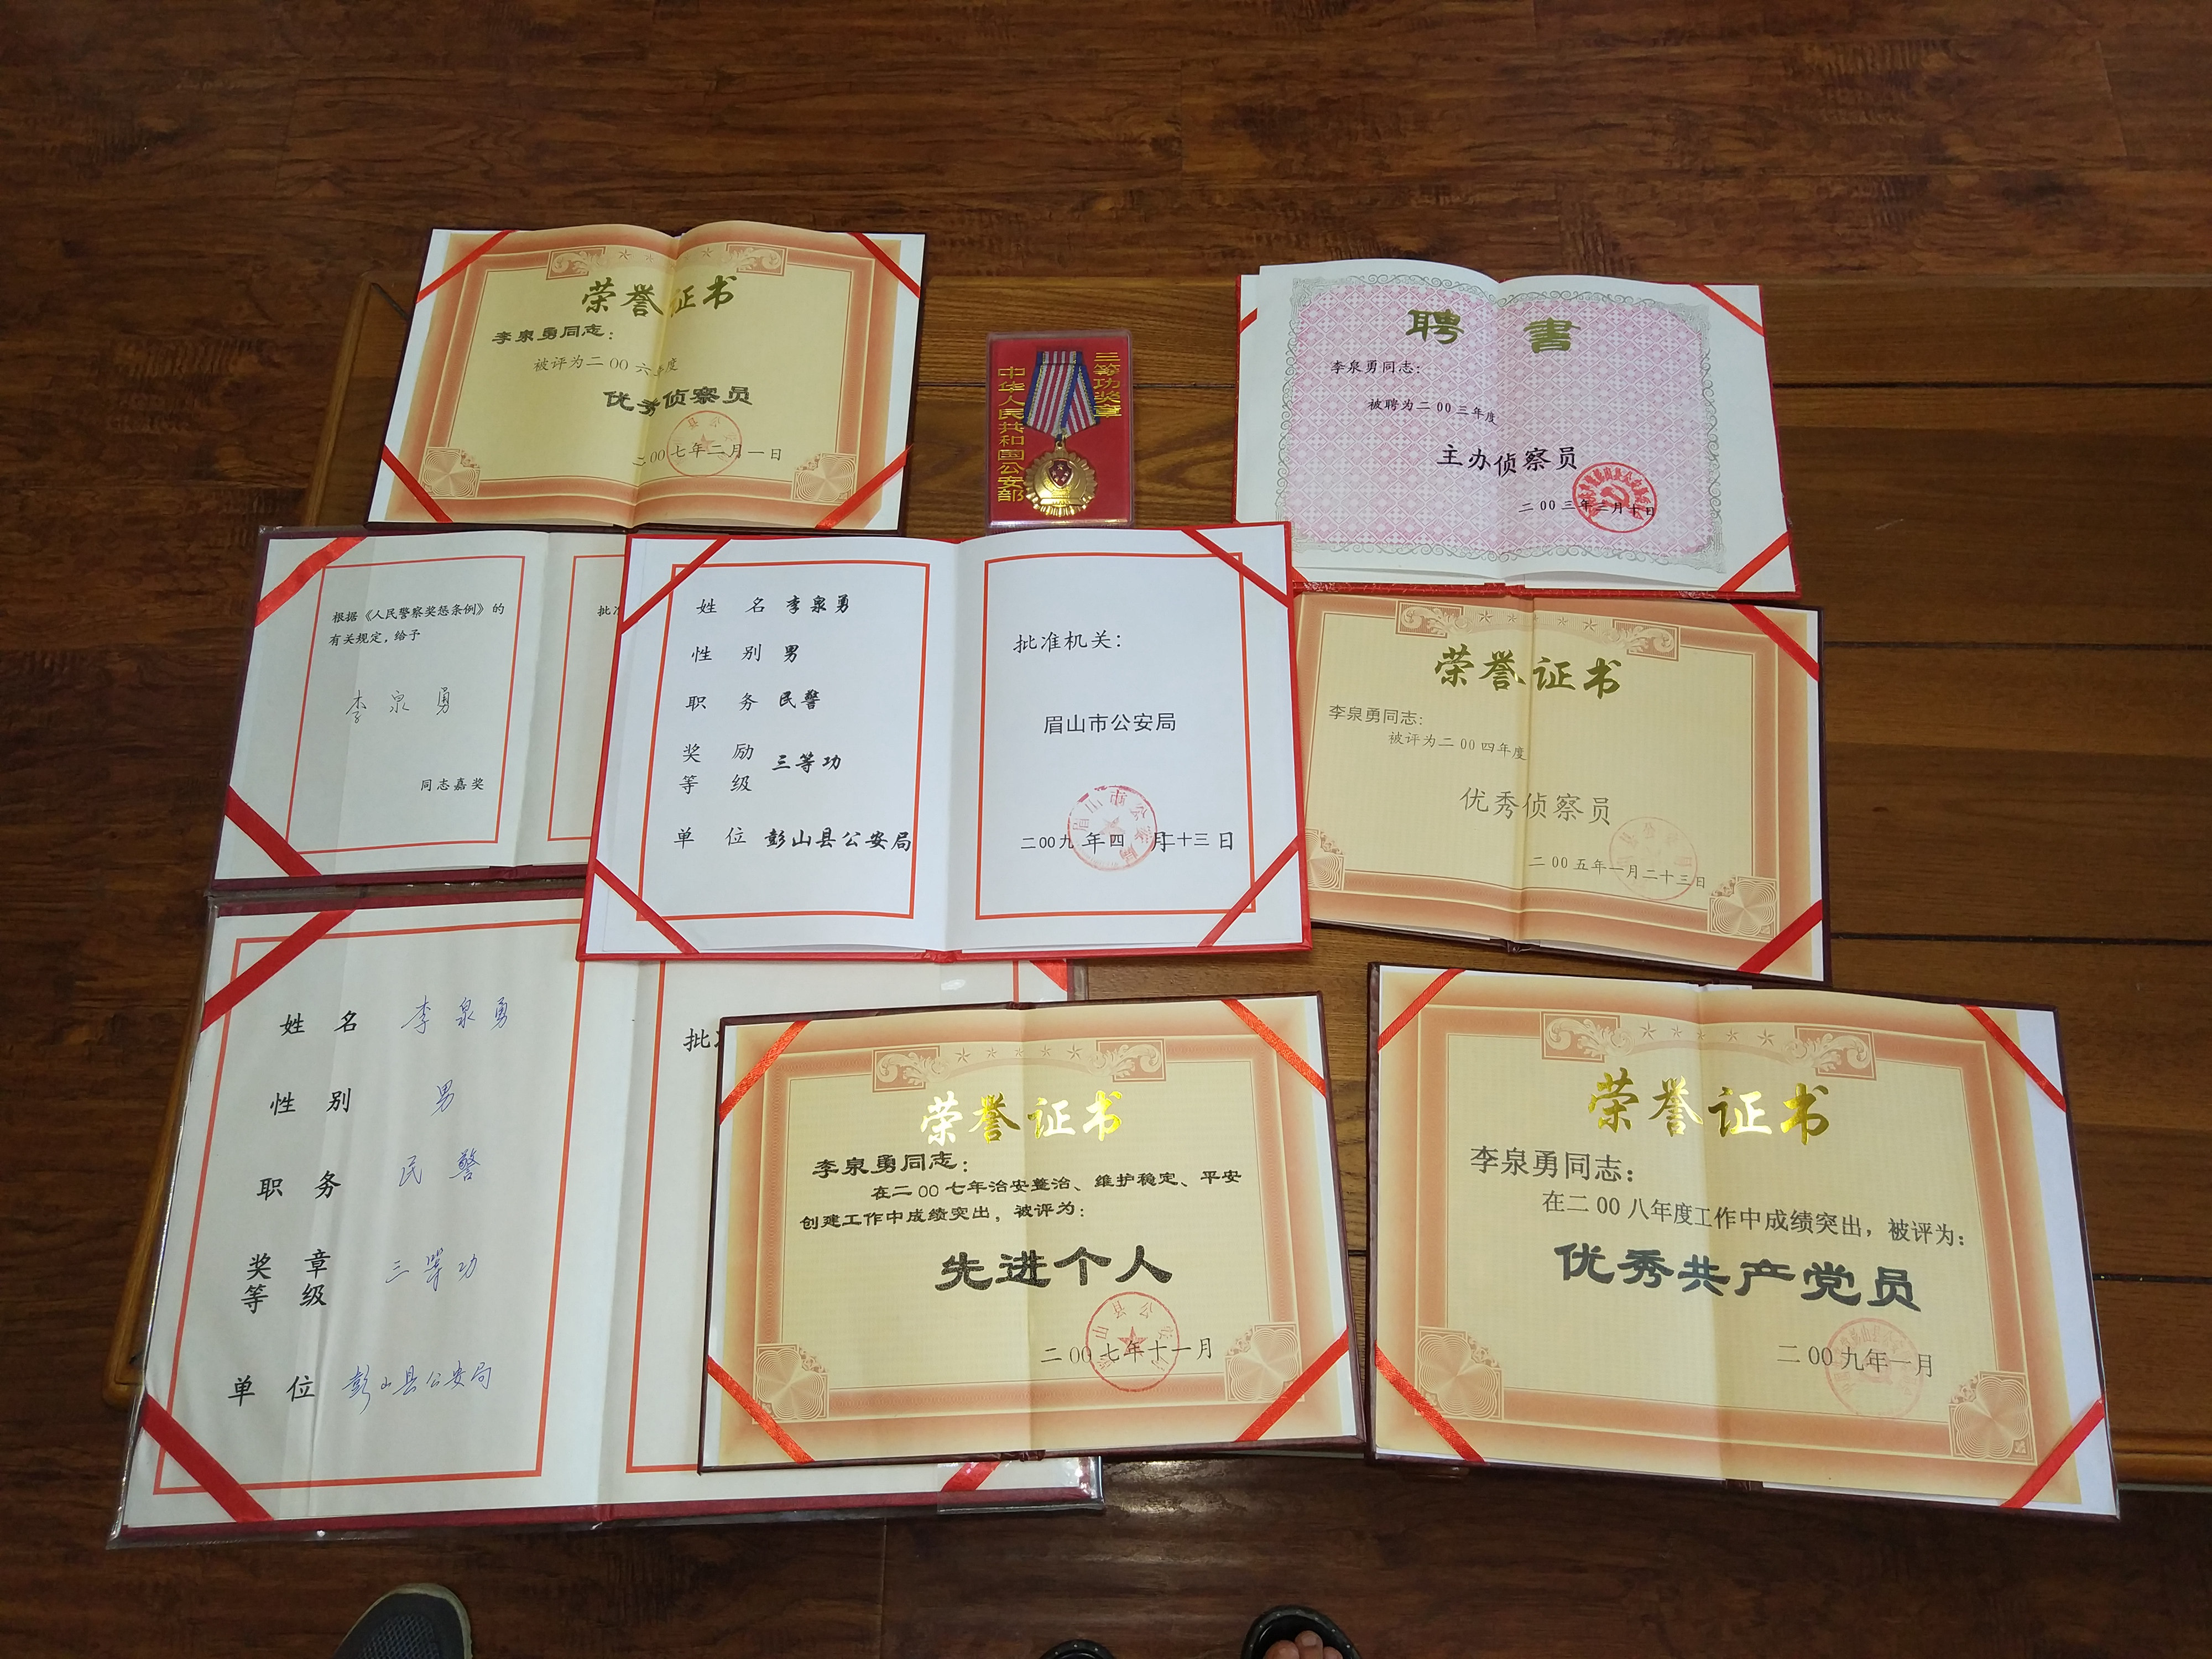 荣誉证书
李泉勇同志：
被评为二00六年度
优秀侦察员
二00七年二月一日
三等功奖章
中华人民共和国公安部
聘書
李泉勇同志：
被聘为二00三年度
主办侦察员
二00三年三月十日
根据《人民警察奖惩条例》的
有关规定，给予
李泉勇
同志嘉奖
批准
姓名 李泉勇
性别 男
职务 民警
奖励
等级 三等功
单位 彭山县公安局
批准机关：
眉山市公安局
二00九年四月二十三日
荣誉证书
李泉勇同志：
被评为二00四年度
优秀侦察员
二00五年一月二十三日
姓名 李泉勇
性别 男
职务 民警
奖章
等级 三等功
单位 彭山县公安局
批
荣誉证书
李泉勇同志：
在二00七年治安整治、维护稳定、平安
创建工作中成绩突出，被评为：
先进个人
二00七年十一月
荣誉证书
李泉勇同志：
在二00八年度工作中成绩突出，被评为：
优秀共产党员
二00九年一月